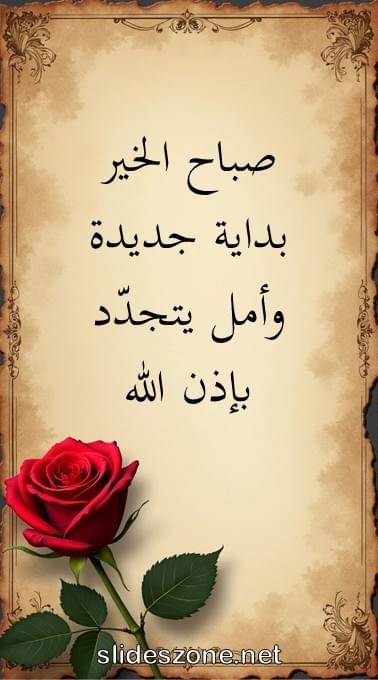 صباح الخير
بداية جديدة
وأمل يتجدّد
بإذن الله
slideszone.net